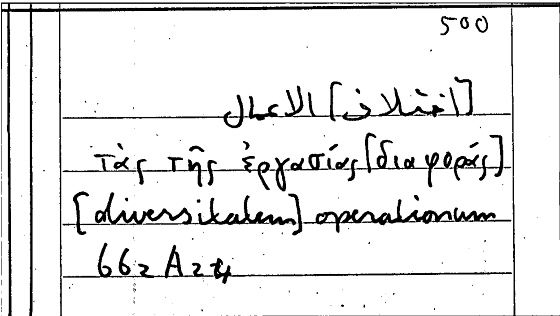 500
[اختلاف] الاعمال
τὰς τῆς ἐργασίας [διαφοράς]
[diversitatem] operationum
662 A 24